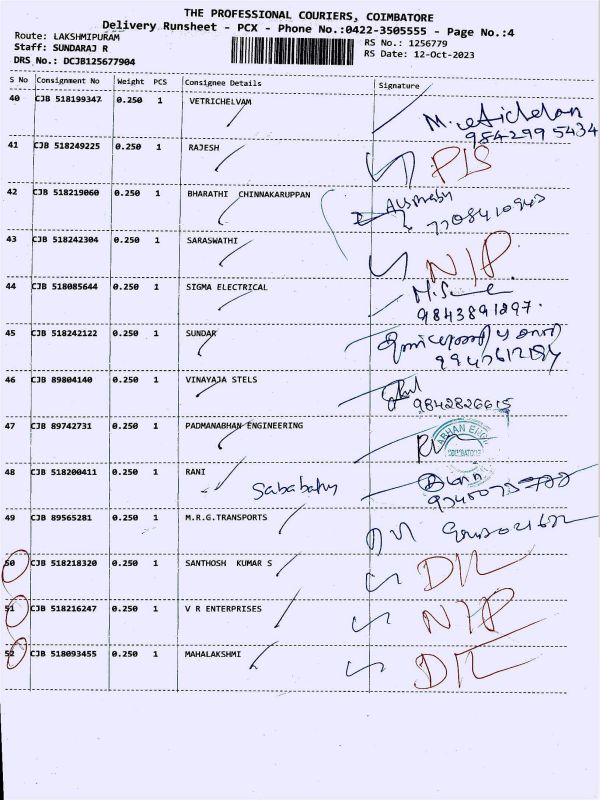 THE PROFESSIONAL COURIERS, COIMBATORE
Delivery Runsheet - PCX - Phone No.:0422-3505555 - Page No.:4
Route: LAKSHMIPURAM
Staff: SUNDARAJ R
DRS No.: DCJB125677904
RS No.: 1256779
RS Date: 12-Oct-2023
S No Consignment No Weight PCS Consignee Details Signature
40 CJB 518199347 0.250 1 VETRICHELVAM
98429995434
41 CJB 518249225 0.250 1 RAJESH
42 CJB 518219060 0.250 1 BHARATHI CHINNAKARUPPAN
7708410943
43 CJB 518242304 0.250 1 SARASWATHI N/P
44 CJB 518085644 0.250 1 SIGMA ELECTRICAL
9843891897.
45 CJB 518242122 0.250 1 SUNDAR
46 CJB 89804140 0.250 1 VINAYAJA STELS
9842826615
47 CJB 89742731 0.250 1 PADMANABHAN ENGINEERING
COIMBATORE
48 CJB 518200411 0.250 1 RANI
Sababathy
49 CJB 89565281 0.250 1 M.R.G.TRANSPORTS
50 CJB 518218320 0.250 1 SANTHOSH KUMAR S D/L
51 CJB 518216247 0.250 1 V R ENTERPRISES N/P
52 CJB 518093455 0.250 1 MAHALAKSHMI D/L